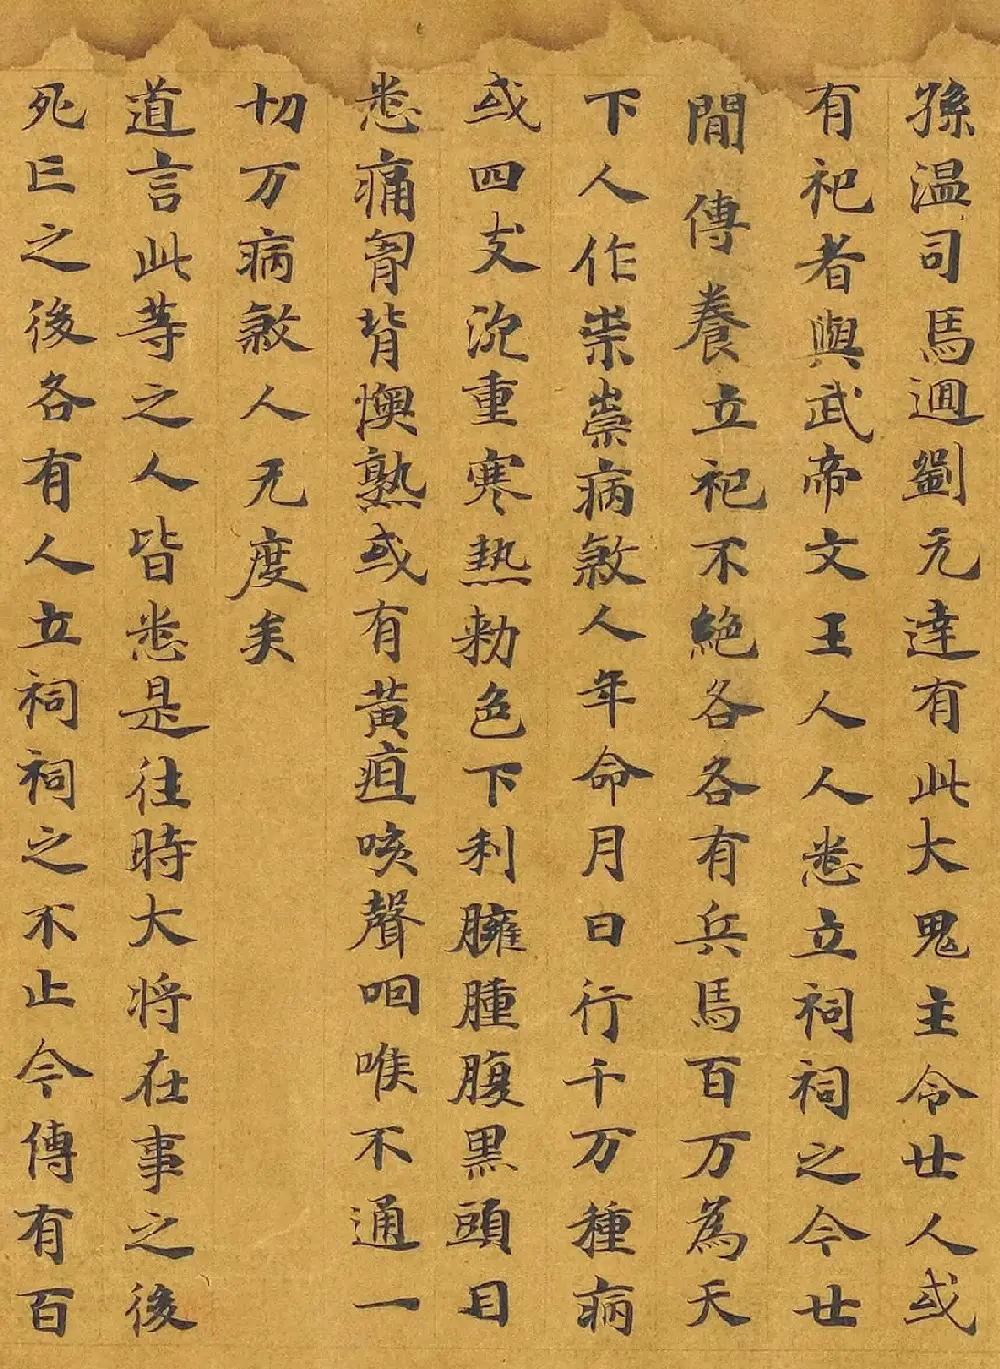 孫温司馬迿劉元達有此大鬼主令廿人或
有祀者與武帝文王人人悉立祠祠之今廿
閒傳養立祀不絶各各有兵馬百万為天
下人作祟祟病煞人年命月日行千万種病
或四支沉重寒热勑色下利臃腫腹黒頭目
悉痛胷背懊熟或有黄疸咳聲呬喉不通一
切万病煞人无度矣
道言此等之人皆悉是往時大将在事之後
死亾之後各有人立祠祠之不止今傳有百